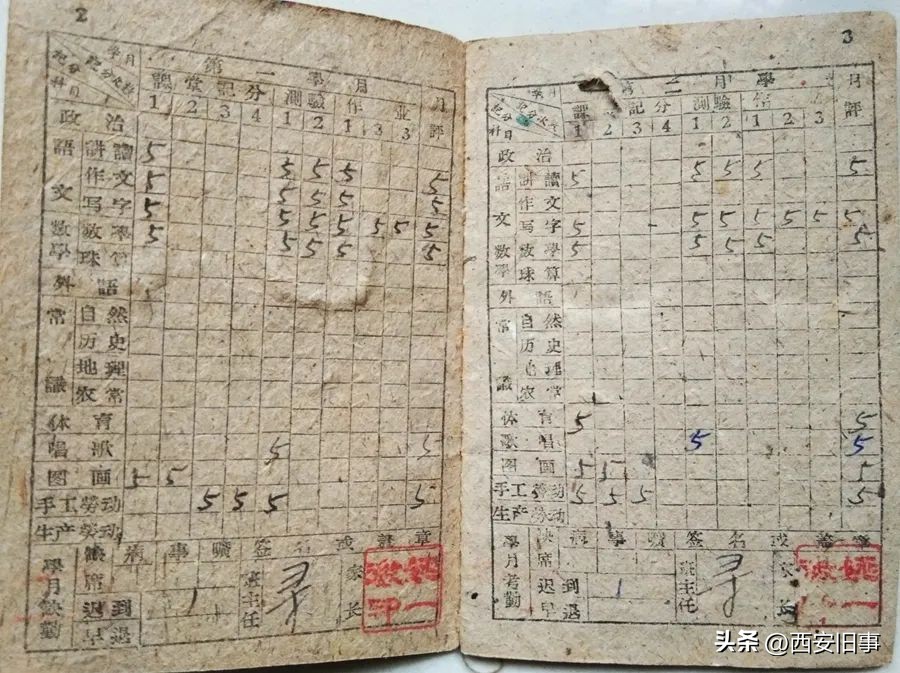 2
第一学月
課堂記分 測驗 作业 月評
1 2 3 4 1 2 1 3 3
政治
語文 講讀 5 5 5 5 5
作文 5 5 5 5 5
写字 5 5 5 5 5 5 5
数學 数學 5 5 5 5 5
珠算
外語
常識 自然
历史
地理
农常
体育
唱歌 5 5
图画 5 5
手工勞动 5 5 5 5
生产勞动
學月考勤 缺席 病 事 曠 签名或蓋章
迟到 1 班主任 家長
早退
3
第二学月
課堂記分 測驗 作业 月評
1 2 3 4 1 2 1 2 3
政治
語文 講讀 5 5 5 5 5
作文
写字 5 5 5 5 5 5 5
数學 数學 5 5 5 5 5
珠算
外語
常識 自然
历史
地理
农常
体育 5 5
歌唱 5 5
图画 5 5 5
手工勞动 5 5 5 5
生产勞动
學月考勤 缺席 病 事 曠 签名或蓋章
迟到 1 班主任 家長
早退
头条 @西安旧事